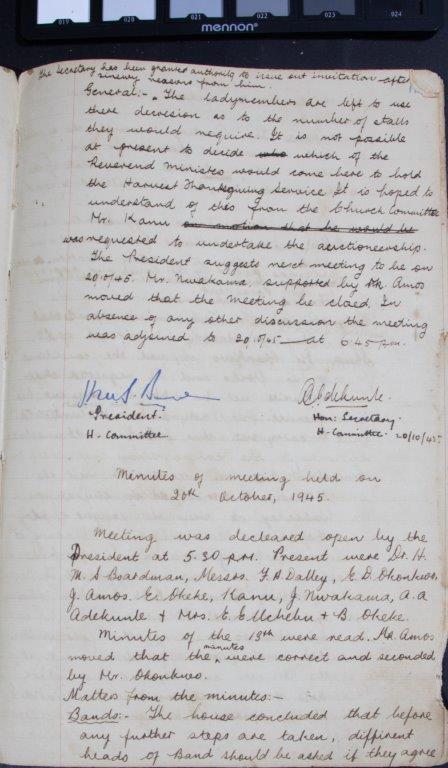 019 020 021 022 023 024
mennon
The Secretary has been granted authority to issue out invitation after
reasons from him.
General:- The ladymembers are left to use
there decresion as to the number of stalls
they would require. It is not possible
at present to decide who which of the
Reverend Ministes would come here to hold
the Harvest Thanksgiving Service It is hoped to
understand of this from the Church Committee
Mr. Kanu on motion that he would be
was requested to undertake the auctioneership.
The President suggests next meeting to be on
20/10/45. Mr. Nwakama, supported by Mr. Amos
moved that the meeting be closed. In
absence of any other discussion the meeting
was adjourned to 20/10/45 at 6.45 p.m.
President.
H. Committee
A Adekunle.
Hon: Secretary.
H. Committee. 20/10/45
Minutes of meeting held on
20th October, 1945.
Meeting was decleared open by the
President at 5.30 p.m. Present were Dr. H.
M. S Boardman, Messrs. F. A. Dalley, E. D. Okonkwo,
J. Amos. E. Oheke, Kanu, J. Nwakama, A. A
Adekunle & Mrs. E. E. & B. Oheke.
Minutes of the 13th were read. Mr. Amos
moved that the minutes were correct and seconded
by Mr. Okonkwo.
Matters from the minutes:-
Bands:- The house concluded that before
any further steps are taken, different
heads of Band should be asked if they agree